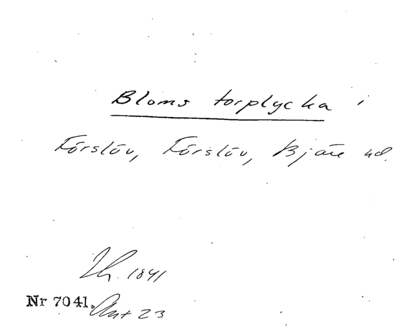 Bloms torplycka i
Förslöv, Förslöv, Bjäre hd.
Lh. 1841
Nr 7041. Akt 23